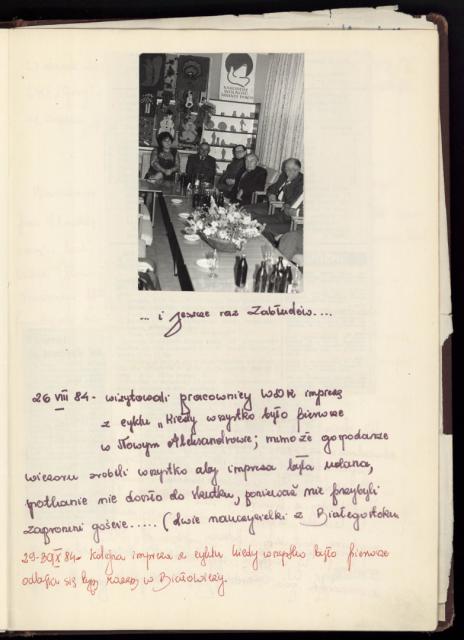 ... i jeszcze raz Zabłudów....
26 VIII 84 - wizytowali pracownicy WDK imprezę
z cyklu "Kiedy wszystko było pierwsze
w Nowym Aleksandrowie; mimo że gospodarze
wieczoru zrobili wszystko aby impreza była udana,
spotkanie nie doszło do skutku, ponieważ nie przybyli
zaproszeni goście..... (dwie nauczycielki z Białegostoku
29-30 IX 84 - kolejna impreza z cyklu kiedy wszystko było pierwsze
odbyła się tym razem w Białowieży.